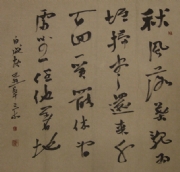 秋風落葉亂為
堆掃盡還來千
百回一笑罷休閒
處坐任他著地
自成灰